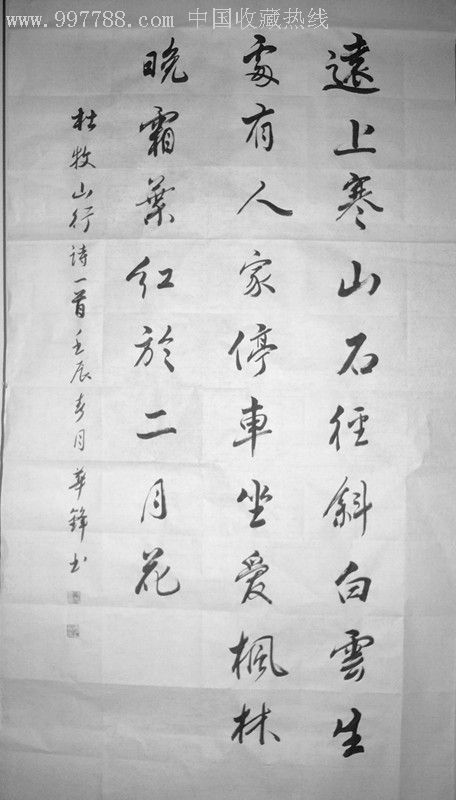 www.997788.com 中国收藏热线
遠上寒山石徑斜白雲生
處有人家停車坐愛楓林
晚霜葉紅於二月花
杜牧山行诗一首壬辰春月華鋒书